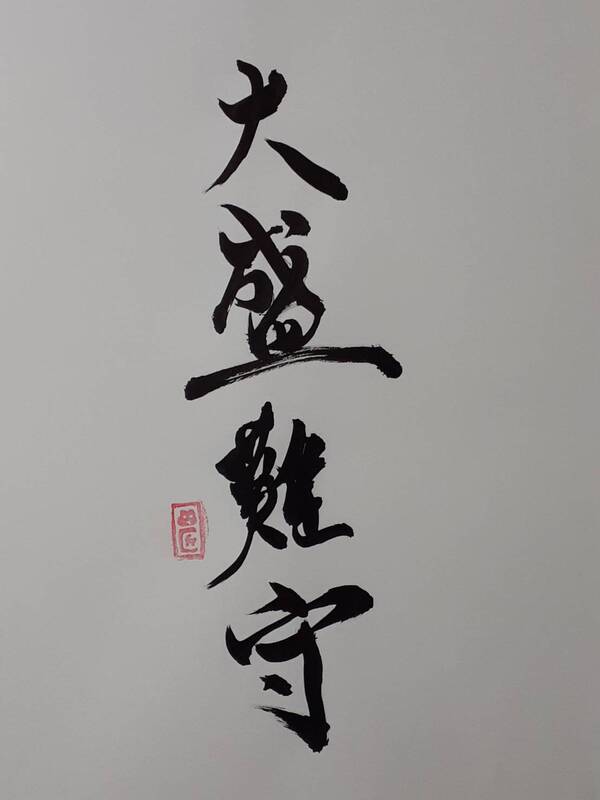 大盛難守